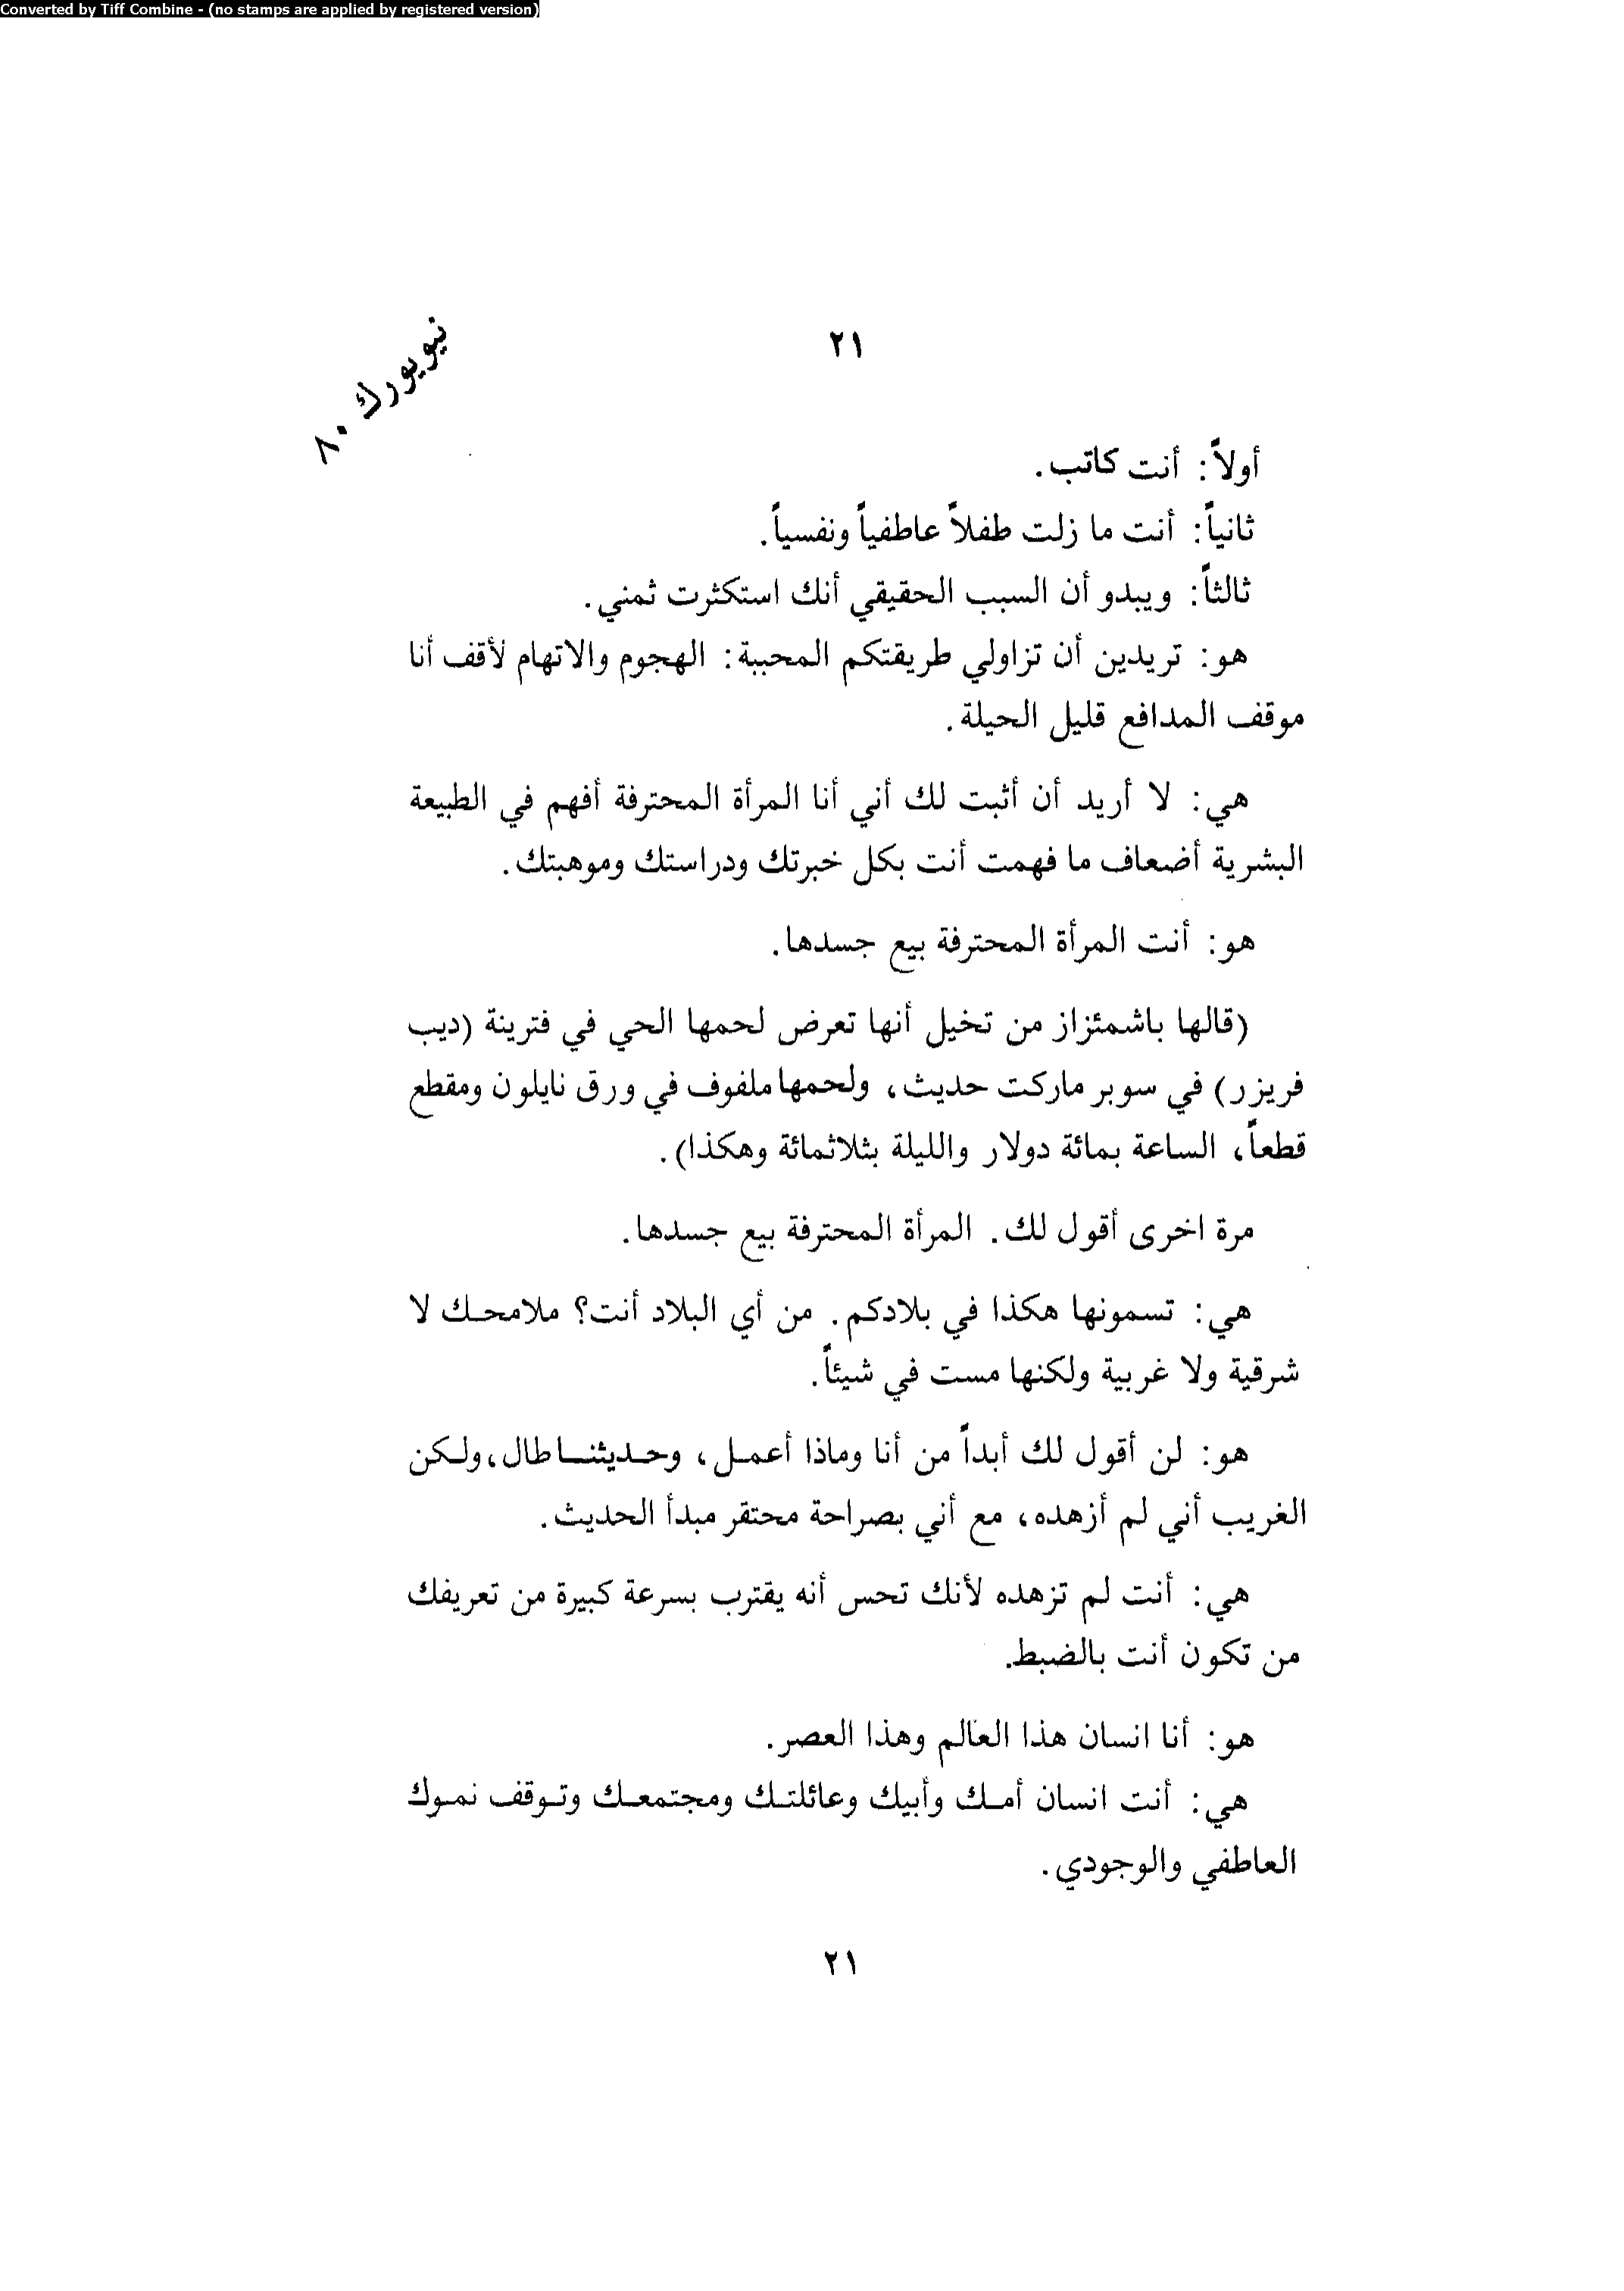 Converted by Tiff Combine - (no stamps are applied by registered version)
٢١
نيويورك ٨٠
أولاً: أنت كاتب.
ثانياً: أنت ما زلت طفلاً عاطفياً ونفسياً.
ثالثاً: ويبدو أن السبب الحقيقي أنك استكثرت ثمني.
هو: تريدين أن تزاولي طريقتكم المحببة: الهجوم والاتهام لأقف أنا
موقف المدافع قليل الحيلة.
هي: لا أريد أن أثبت لك أني أنا المرأة المحترفة أفهم في الطبيعة
البشرية أضعاف ما فهمت أنت بكل خبرتك ودراستك وموهبتك.
هو: أنت المرأة المحترفة بيع جسدها.
(قالها باشمئزاز من تخيل أنها تعرض لحمها الحي في فترينة (ديب
فريزر) في سوبر ماركت حديث، ولحمها ملفوف في ورق نايلون ومقطع
قطعاً، الساعة بمائة دولار والليلة بثلاثمائة وهكذا).
مرة اخرى أقول لك. المرأة المحترفة بيع جسدها.
هي: تسمونها هكذا في بلادكم. من أي البلاد أنت؟ ملامحك لا
شرقية ولا غربية ولكنها مست في شيئاً.
هو: لن أقول لك أبداً من أنا وماذا أعمل، وحديثنا طال، ولكن
الغريب أني لم أزهده، مع أني بصراحة محتقر مبدأ الحديث.
هي: أنت لم تزهده لأنك تحس أنه يقترب بسرعة كبيرة من تعريفك
من تكون أنت بالضبط.
هو: أنا انسان هذا العالم وهذا العصر.
هي: أنت انسان أمك وأبيك وعائلتك ومجتمعك وتوقف نموك
العاطفي والوجودي.
٢١